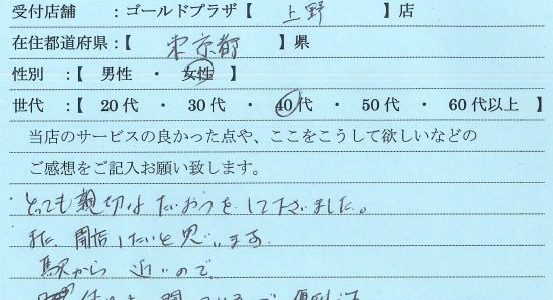 受付店舗 :ゴールドプラザ【 上野 】店
在住都道府県:【 東京都 】県
性別 :【 男性 ・ 女性 】
世代 :【 20代 ・ 30代 ・ 40代 ・ 50代 ・ 60代以上 】
当店のサービスの良かった点や、ここをこうして欲しいなどの
ご感想をご記入お願い致します。
とっても親切なたいおうをして下さいました。
また、したいと思います。
駅から近いので、